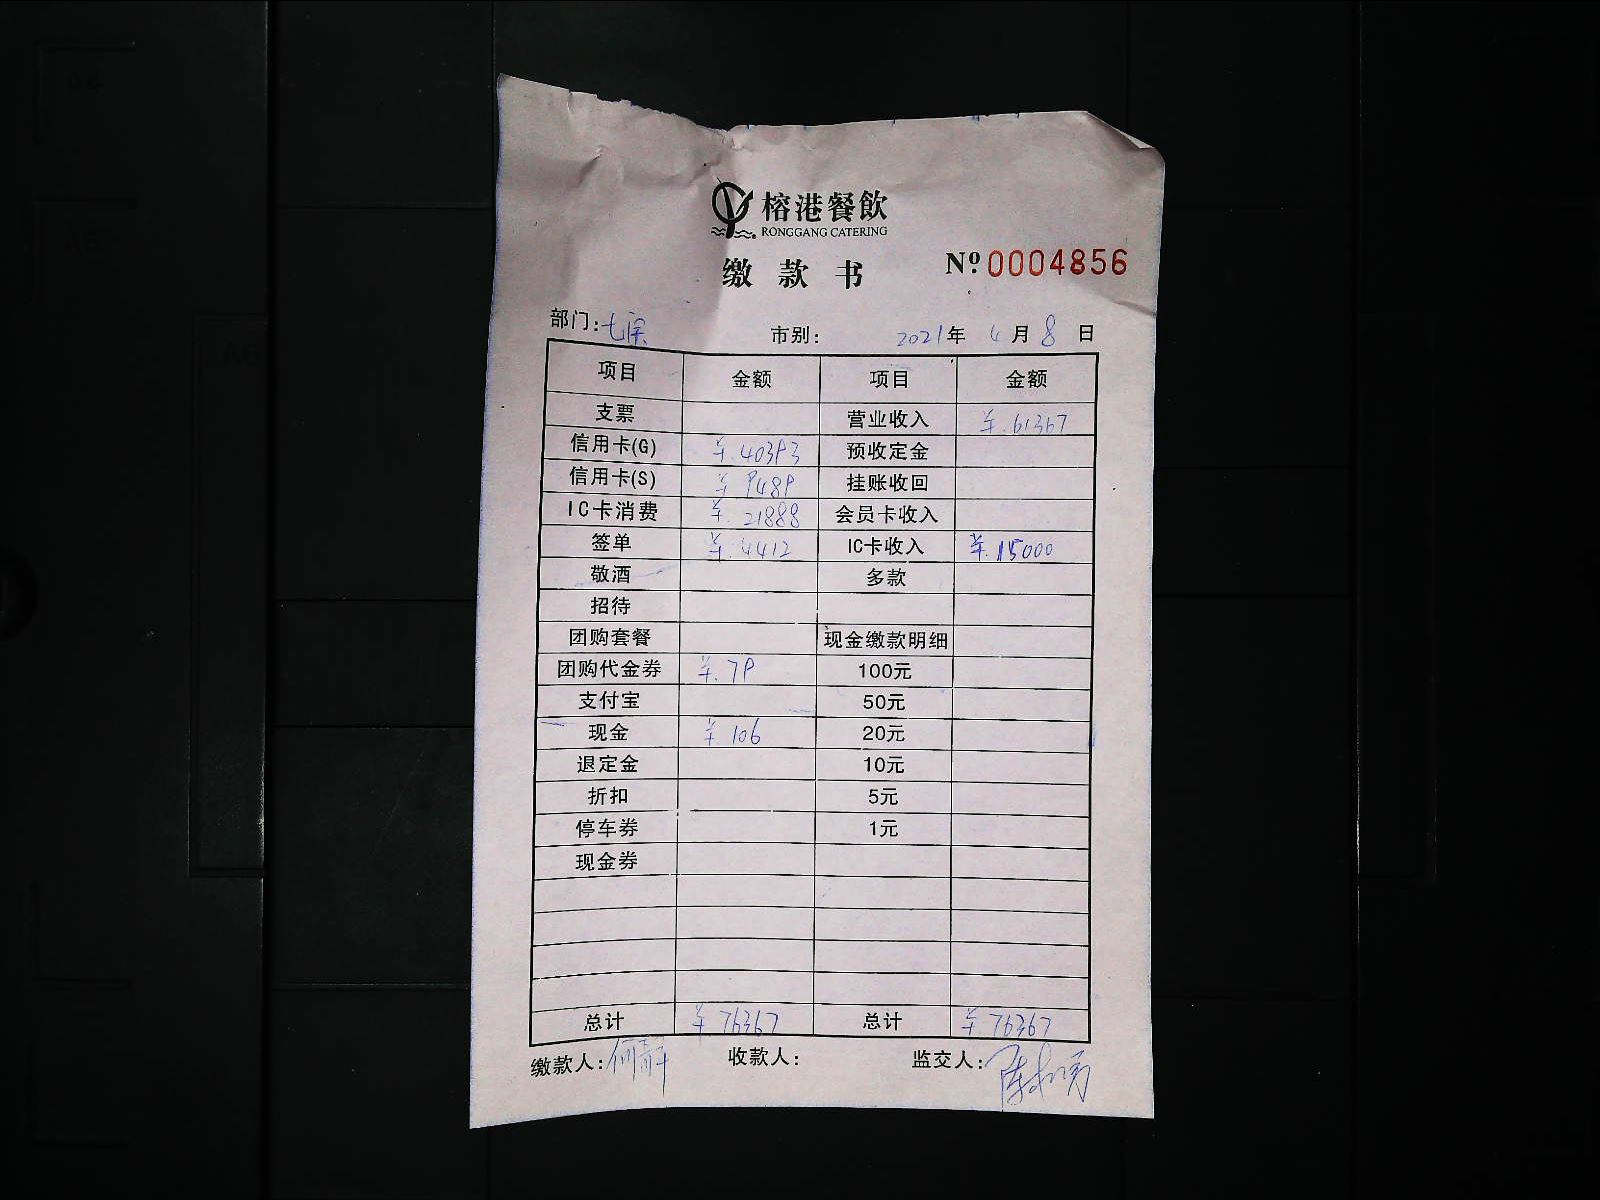 榕港餐飲
RONGGANG CATERING
缴款书 Nº 0004856
部门: 市别: 2021年 4月 8日
项目 金额 项目 金额
支票 营业收入 ¥.61367
信用卡(G) ¥.40393 预收定金
信用卡(S) ¥ 9489 挂账收回
IC卡消费 ¥.21888 会员卡收入
签单 ¥.4412 IC卡收入 ¥.15000
敬酒 多款
招待
团购套餐 现金缴款明细
团购代金券 ¥.79 100元
支付宝 50元
现金 ¥ 106 20元
退定金 10元
折扣 5元
停车券 1元
现金券
总计 ¥ 76367 总计 ¥.76367
缴款人: 收款人: 监交人: